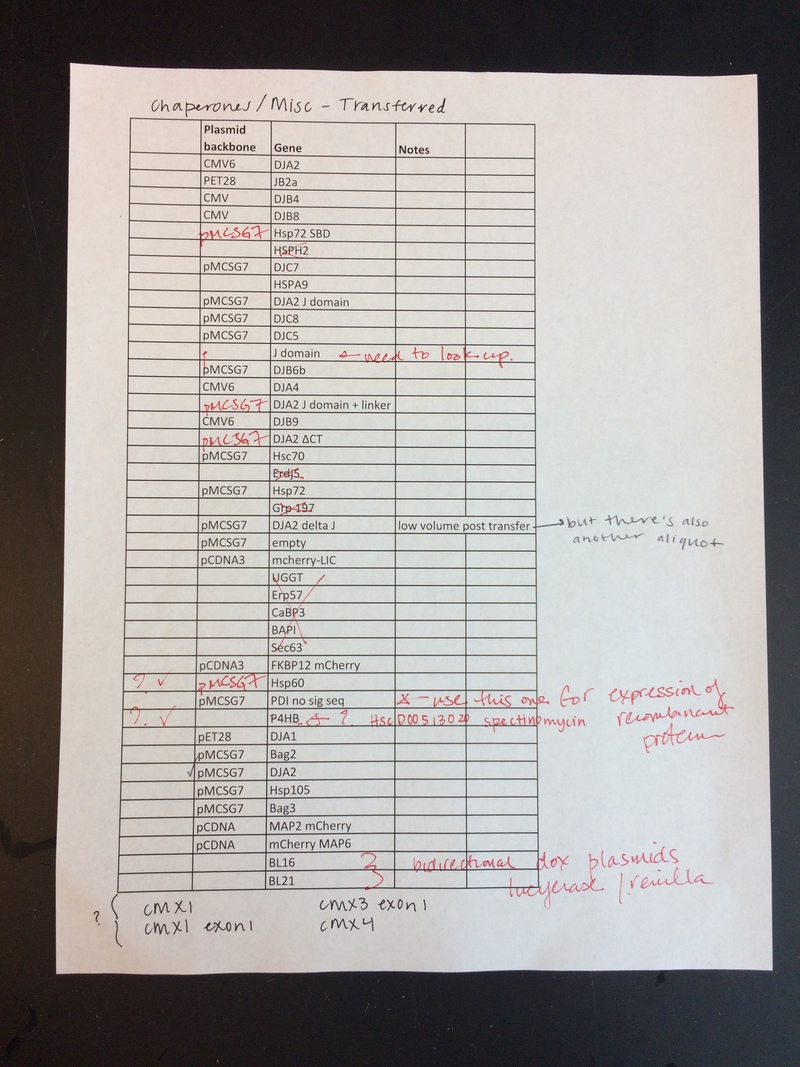 Chaperones / Misc - Transferred
Plasmid backbone Gene Notes
CMV6 DJA2
PET28 JB2a
CMV DJB4
CMV DJB8
pMCSG7 Hsp72 SBD
HSPH2
pMCSG7 DJC7
HSPA9
pMCSG7 DJA2 J domain
pMCSG7 DJC8
pMCSG7 DJC5
J domain need to look up.
pMCSG7 DJB6b
CMV6 DJA4
pMCSG7 DJA2 J domain + linker
CMV6 DJB9
pMCSG7 DJA2 ΔCT
pMCSG7 Hsc70
Erdj5
pMCSG7 Hsp72
Grp 197
pMCSG7 DJA2 delta J low volume post transfer → but there's also
pMCSG7 empty another aliquot
pCDNA3 mcherry-LIC
UGGT
Erp57
CaBP3
BAPI
Sec63
pCDNA3 FKBP12 mCherry
? ✓ pMCSG7 Hsp60
pMCSG7 PDI no sig seq use this one for expression of
? ✓ P4HB ? HscD00513020 spectinomycin recombinant
pET28 DJA1 protein
pMCSG7 Bag2
✓ pMCSG7 DJA2
pMCSG7 Hsp105
pMCSG7 Bag3
pCDNA MAP2 mCherry
pCDNA mCherry MAP6
BL16 bidirectional dox plasmids
BL21 luciferase / renilla
? CMX1 CMX3 exon1
CMX1 exon1 CMX4